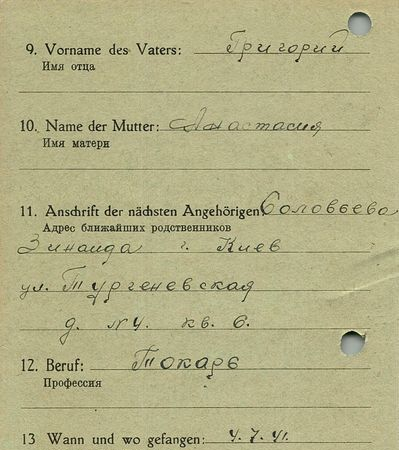 9. Vorname des Vaters: Григорий
Имя отца
10. Name der Mutter: Анастасия
Имя матери
11. Anschrift der nächsten Angehörigen: Соловьева
Адрес ближайших родственников
Зинаида г. Киев
ул. Тургеневская
д. №4. кв. 6.
12. Beruf: Токарь
Профессия
13 Wann und wo gefangen: 4.7.41.